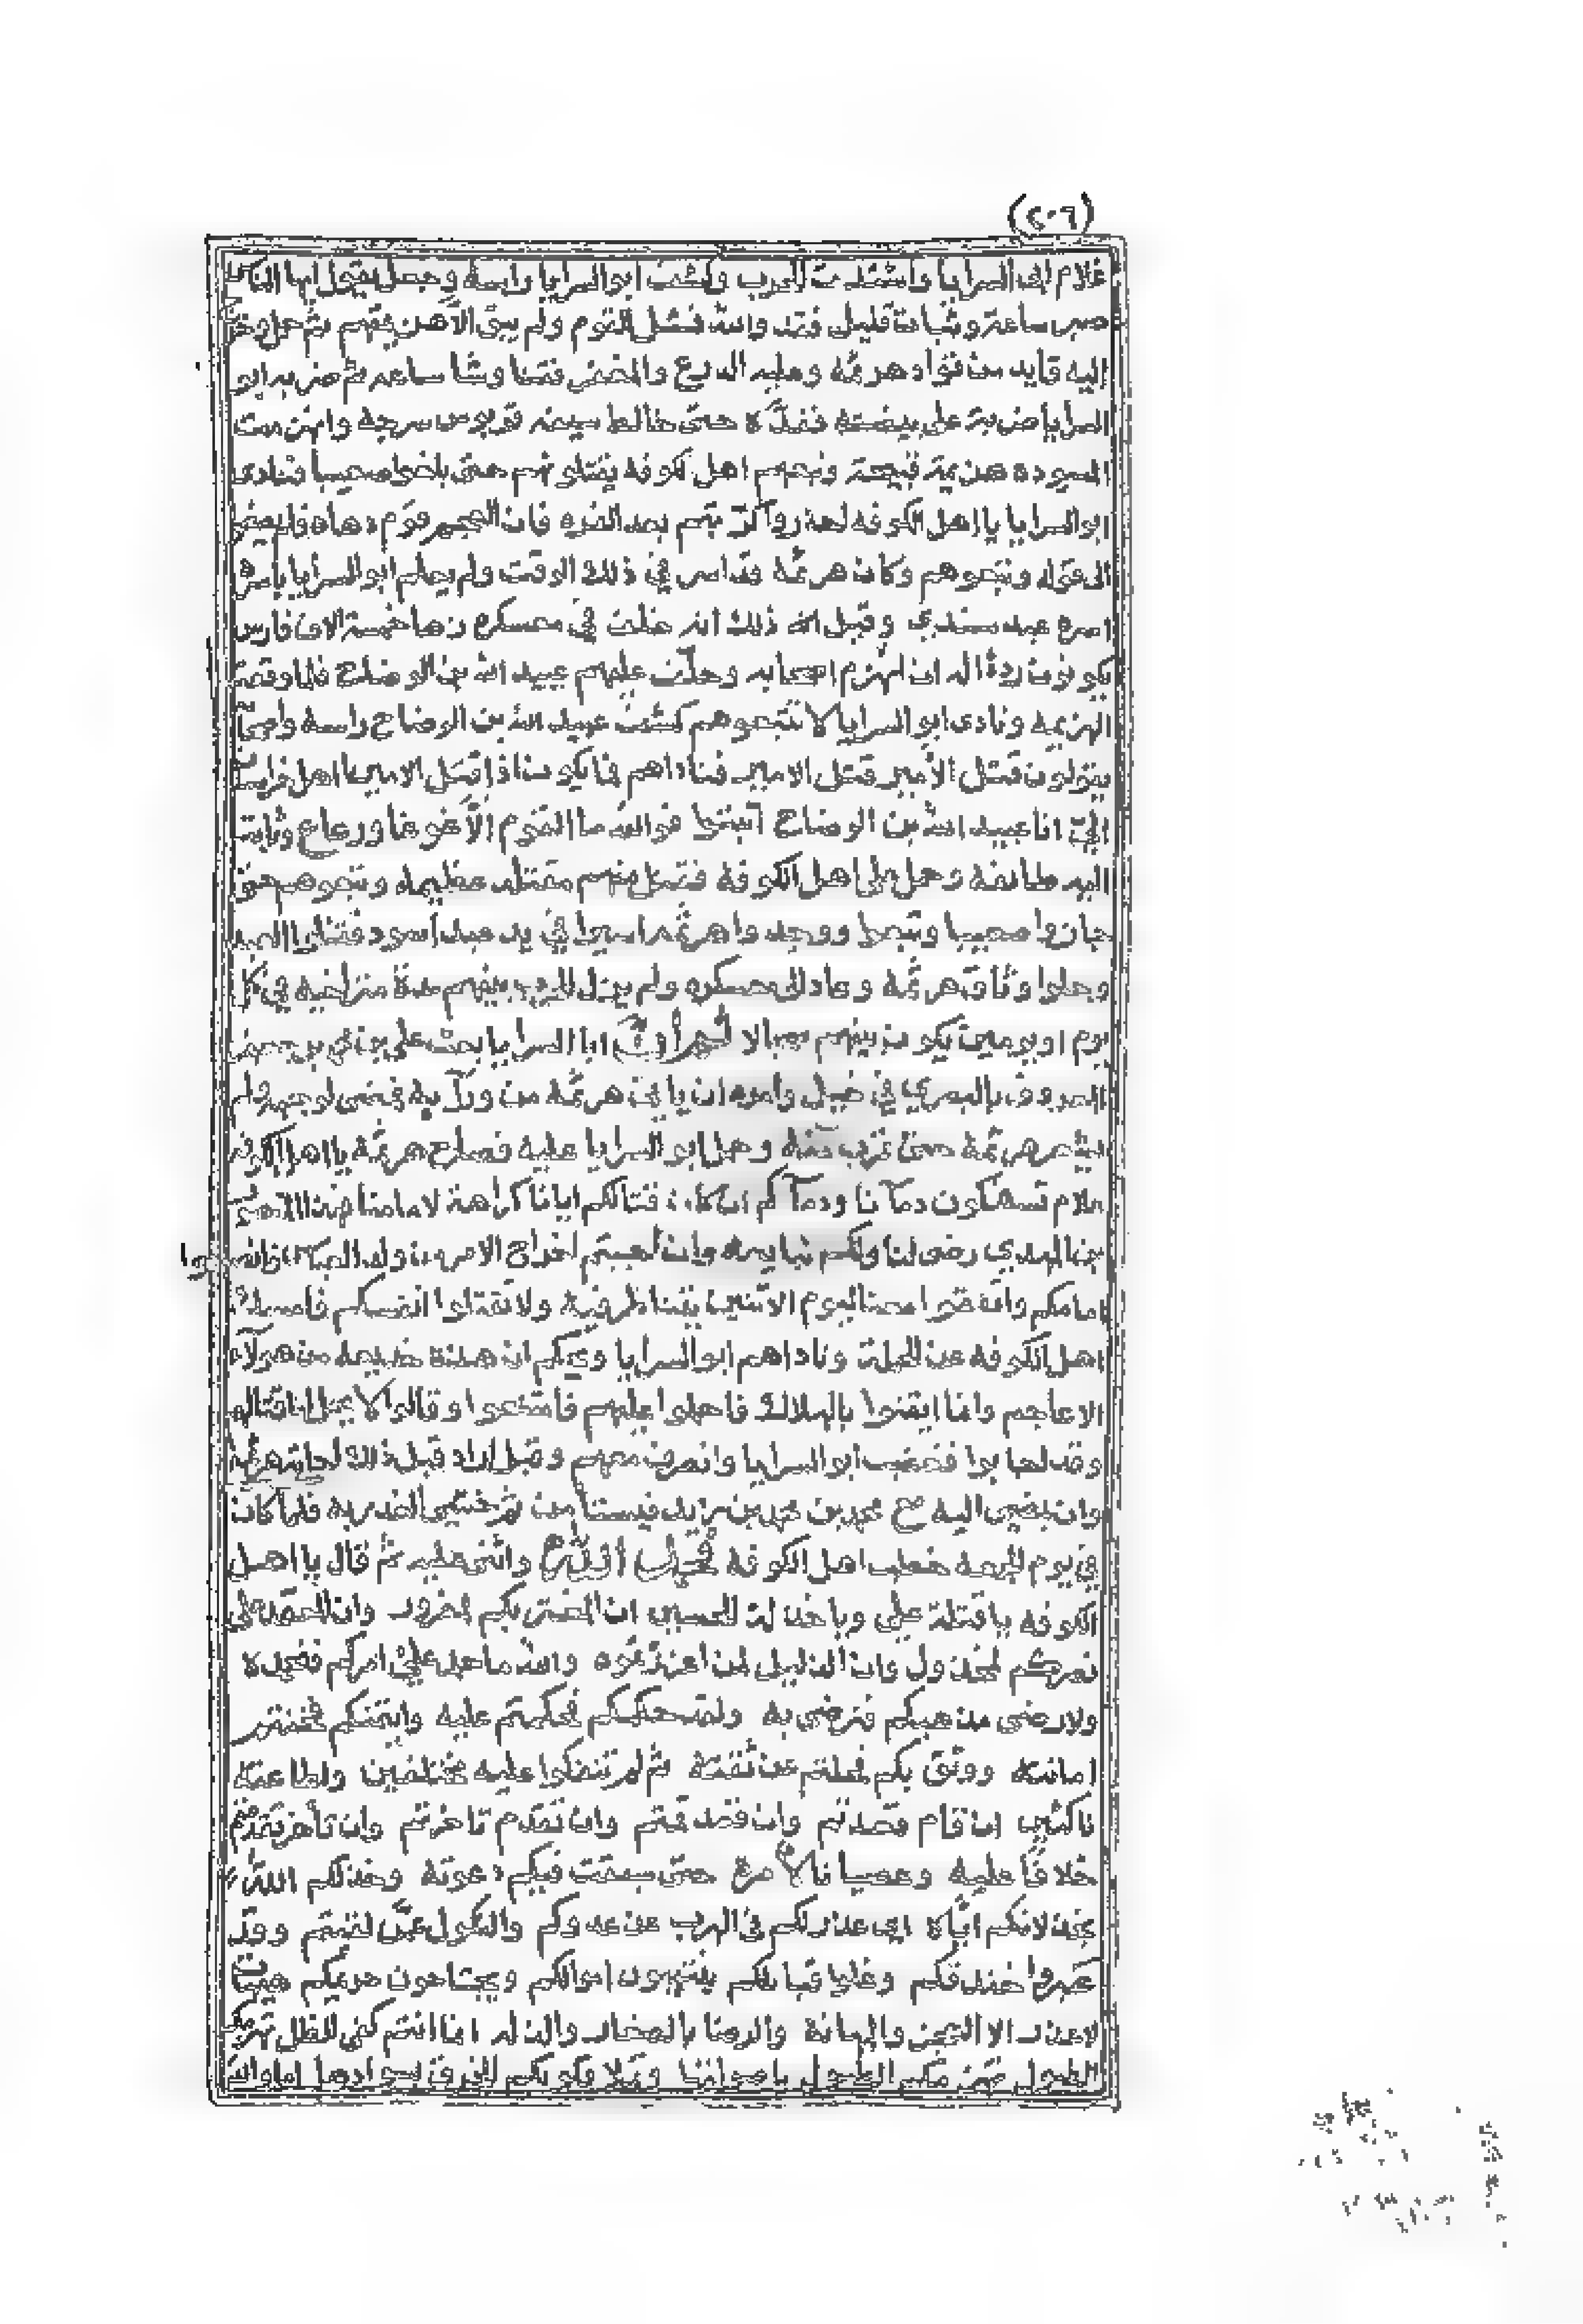 (٢٠٦)
غلام ابى السرايا واشتدت الحرب وكشف ابو السرايا راسه وجعل يقول ايها الناس
صبر ساعة وثبات قليل فقد والله فشل القوم ولم يبق الا هزيمتهم ثم حمل وخرج
اليه قايد من قواد هرثمه وعليه الدرع والمغفر فتناوشا ساعه ثم ضربه ابو
السرايا ضربة على بيضته فقدّه حتى خالط سيفه قربوس سرجه وانهزمت
المسوده هزيمة قبيحة وتبعهم اهل الكوفه يقتلونهم حتى بلغوا صعنبا فنادى
ابو السرايا يا اهل الكوفه احذروا كرّتهم بعد الفره فان العجم قوم دهاه فلم يصغوا
الى قوله وتبعوهم وكان هرثمه قد اسر في ذلك الوقت ولم يعلم ابو السرايا باسره
اسره عبد سندي وقبل ذلك انه خلف في معسكره زها خمسة الاف فارس
يكونون ردءا له ان انهزم اصحابه وخلّف عليهم عبيد الله بن الوضاح فلما وقعت
الهزيمه ونادى ابو السرايا لا تتبعوهم كشف عبيد الله بن الوضاح راسه وهم
يقولون قتل الأمير قتل الامير فناداهم فما يكون اذا قتل الامير يا اهل خراسان
اليّ انا عبيد الله بن الوضاح اثبتوا فوالله ما القوم الّا غوغا ورعاع وثابت
اليه طائفه وحمل على اهل الكوفه فقتل منهم مقتله عظيمه وتبعوهم حتى
جازوا صعنبا وتبعوا ووجدوا هرثمه اسيرا في يد عبد اسود فقتلوا العبد
وحلوا وثاق هرثمه وعاد الى معسكره ولم يزل الحرب بينهم مدة متراخيه في كل
يوم او يومين يكون بينهم سجالا ثم ان ابا السرايا بعث علي بن محمد بن جعفر
المعروف بالبصري في خيل وامره ان ياتى هرثمه من ورآيه فمضى لوجهه ولم
يشعر هرثمه حتى قرب منه وحمل ابو السرايا عليه فصاح هرثمه يا اهل الكوفه
علام تسفكون دمآنا ودمآكم ان كان قتالكم ايانا كراهة لامامنا فهذا المنصور
بن المهدي رضى لنا ولكم نبايعه وان احببتم اخراج الامر من ولد العباس فانصبوا
امامكم واتفقوا معنا ليوم الاثنين نتناظر فيه ولا تقتلوا انفسكم فامسك
اهل الكوفه عن الحملة وناداهم ابو السرايا ويحكم ان هذه خديعه من هولآء
الاعاجم وانما ايقنوا بالهلاك فاحملوا عليهم فامتنعوا وقالوا لا يحل لنا قتالهم
وقد اجابوا فغضب ابو السرايا وانصرف معهم
في يوم الجمعه خطب اهل الكوفه فحمد الله واثنى عليه ثم قال يا اهل
الكوفه يا قتلة علي ويا خذلة الحسين ان المغتر بكم لمغرور وان المعتمد على
نصركم لمخذول وان الذليل لمن اعززتموه والله ما حمد علي امركم فنحمده
ولا رضى مذهبكم فنرضى به ولقد حكمكم فحكمتم عليه وايتمنكم فخنتم
امانته ووثق بكم فحلتم عن ثقته ثم لم تنفكوا عليه مختلفين ولطاعته
ناكثين ان قام قعدتم وان قعد قمتم وان تقدم تاخرتم وان تأخر تقدمتم
خلافا عليه وعصيانا لامره حتى سبقت فيكم دعوته وخذلكم الله
بخذلانكم ايّاه اي عذر لكم في الهرب عن عدوكم والنكول عمّن لقيتم وقد
عبروا خندقكم وعلوا قبايلكم ينتهبون اموالكم ويستحيون حريمكم هيهات
لا عذر لكم الا العجز والمهانة والرضا بالصغار والذله انما انتم كفئ الظل تهزمكم
الطبول باصواتها